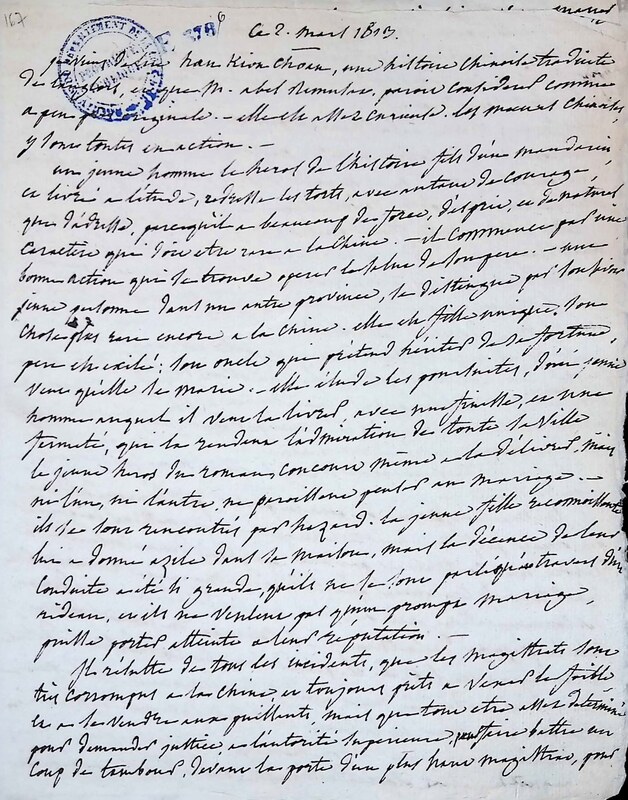 167
E 378 6
Ce 2. mars 1813.
je viens de lire hau Kiou Choan, une histoire chinoise traduite
de l'anglois, et que M. abel Remusat, paroit considerer comme
a peu près originale. - elle est assez curieuse. les moeurs chinoises
y sont toutes en action. -
un jeune homme le heros de l'histoire fils d'un mandarin
et livré a l'étude, redresse les torts, avec autant de courage,
que d'adresse, parcequ'il a beaucoup de force, d'esprit, et de naturel
caractere qui doit etre rare a la Chine. - il commence par une
bonne action qui se trouve
jeune personne dans une autre province, se distingue par
chose plus rare encore a la Chine. elle est fille unique. son
pere est exilé; son oncle qui prétend hériter de sa fortune,
veut qu'elle se marie. - elle élude les poursuites, d'un jeune
homme auquel il veut la livrer, avec une finesse et une
fermeté, qui la rendent l'admiration de toute la ville
le jeune heros du roman, concourt même a la délivrer, mais
ne l'un, ne l'autre, ne paroissent penser au mariage. -
ils se sont rencontrés par hazard. la jeune fille reconnoissante
lui a donné azile dans sa maison, mais la décence de leur
conduite a été si grande, qu'ils ne se sont parlé qu'a travers d'un
rideau, et ils ne veulent pas qu'un prompt mariage,
puisse porter atteinte a leur réputation. -
Il résulte de tous ces incidents, que les magistrats sont
très corrompus a la Chine, et toujours prêts a vexer le foible
et a se vendre aux puissants, mais que tout etre assez déterminé
pour demander justice, a l'autorité supérieure, peut faire battre un
coup de tambour, devant la porte d'un plus haut magistrat, pour